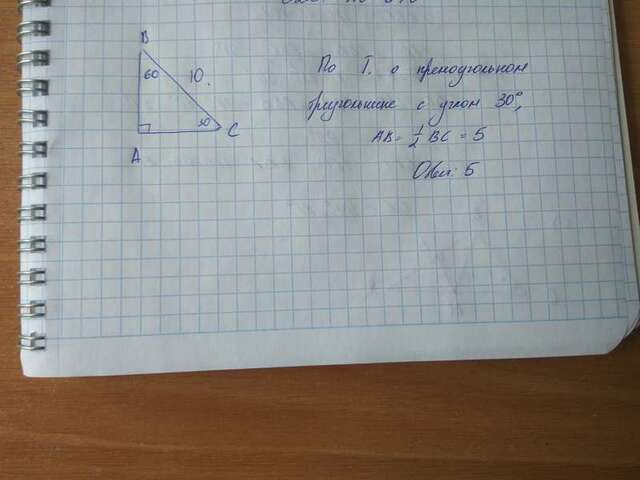 B
60
10.
30
C
A
По Т. о прямоугольном
треугольнике с углом 30°,
AB = 1/2 BC = 5
Отв: 5